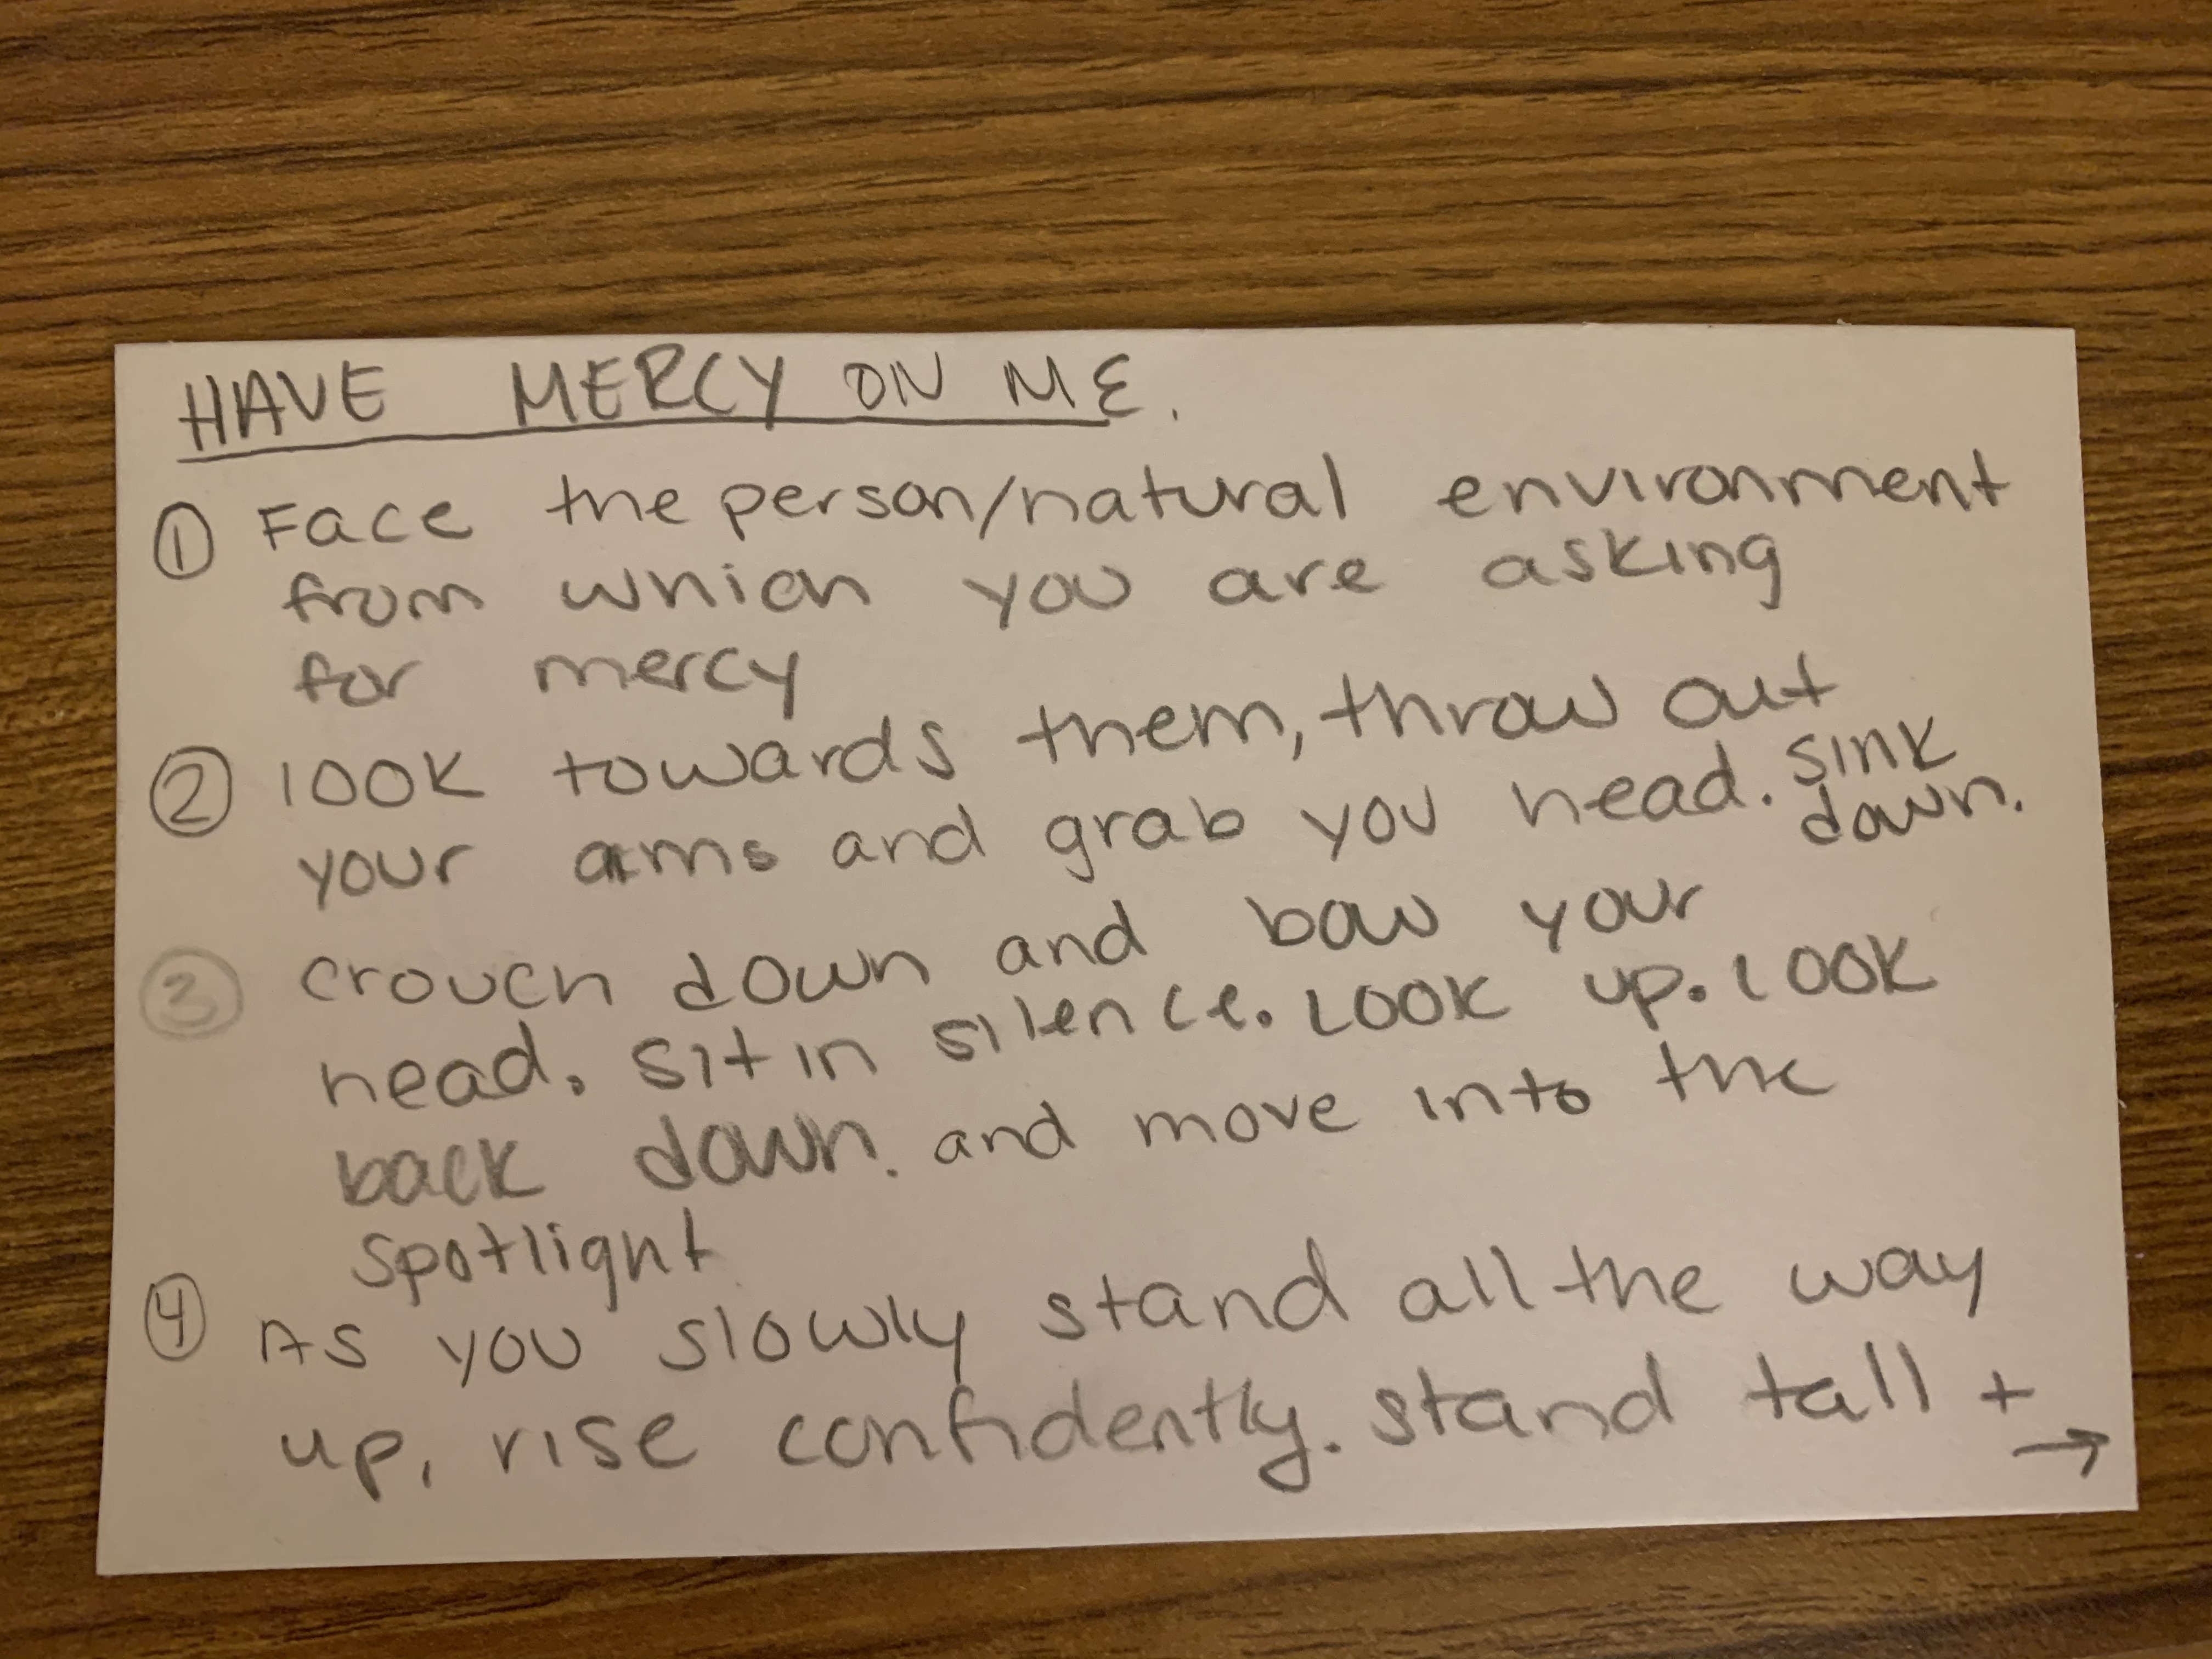 HAVE MERCY ON ME.
① Face the person/natural environment
from which you are asking
for mercy
② look towards them, throw out
your arms and grab you head. sink
down.
③ crouch down and bow your
head. sit in silence. Look up. look
back down. and move into the
spotlight
④ As you slowly stand all the way
up, rise confidently. stand tall +
→